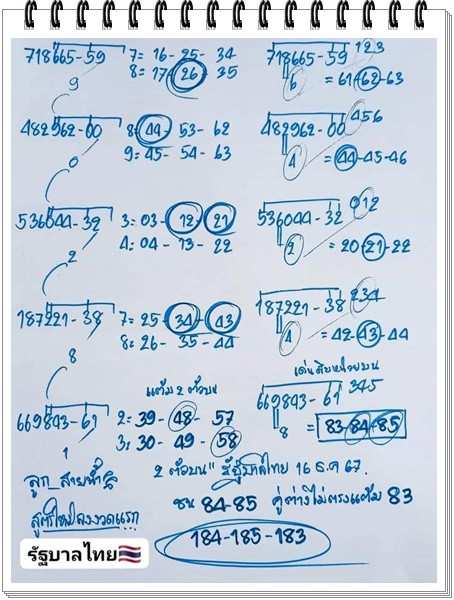 718665-59 7= 16-25-34 718665-59 123
8= 17-26-35 6 = 61-62-63
9
482962-00 8= 44-53-62 482962-00 456
9= 45-54-63 4 = 44-45-46
0
536044-32 3= 03-12-21 536044-32 012
4= 04-13-22 2 = 20-21-22
2
187221-38 7= 25-34-43 187221-38 234
8= 26-35-44 4 = 42-43-44
8
แต้ม 2 ตัวบน เด่นสิบหน่วยบน
669843-61 2= 39-48-57 669843-61 345
3= 30-49-58 8 = 83-84-85
1
ลูก สายฟ้า 2 ตัวบน" รัฐบาลไทย 16 ธ.ค 67.
ชน 84-85 คู่ต่างไม่ตรงแต้ม 83
สูตรใหม่ลงงวดแรก
184-185-183
รัฐบาลไทย🇹🇭